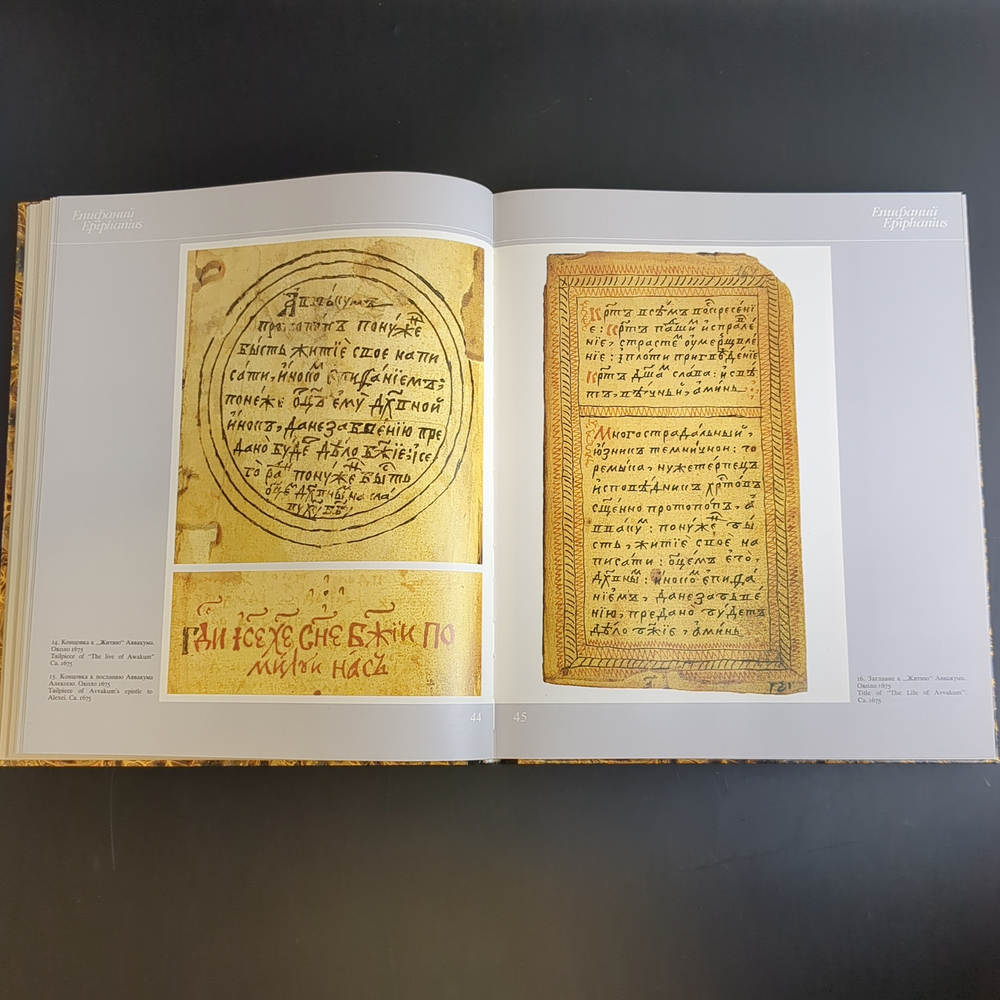 Епифаний
Epiphanius
Аввакумъ
протопопъ понуже҆н
бысть житїѐ свое напи
сати, и҆нокомъ є҆пифа́нїемъ;
понеже о҆ц҃ъ є҆мꙋ̀ дх҃о́вной
и҆нокъ, да не забве́нїю пре
дано бꙋ́детъ дѣ́ло бж҃їе; и҆ се
то̀ ра́ди понꙋ́женъ бы́сть
о҆ц҃е́мъ дх҃о́внымъ, на сла́
вꙋ хрⷭ҇тꙋ̀ бг҃ꙋ
ГДИ ІСЕ ХЕ СНЕ БЖІИ ПО
МИЛꙋИ НАСЪ
14. Концовка к „Житию“ Аввакума.
Около 1675
Tailpiece of “The live of Awakum”
Ca. 1675
15. Концовка к посланию Аввакума
Алексею. Около 1675
Tailpiece of Avvakum's epistle to
Alexei. Ca. 1675
44
Епифаний
Epiphanius
Крⷭ҇тъ всѣ́мъ воскресе́нї
е: крⷭ҇тъ па́дшимъ и҆справле́
нїе, страсте́мъ ᲂу҆мерщвле́
нїе: и҆ пло́ти пригвожде́нїе
крⷭ҇тъ дш҃а́мъ сла́ва: и҆ свѣ́
тъ, вѣ́чный, а҆ми́нь.
Многострада́льный,
ю҆́зникъ темничной: го
ремы́ка, нꙋжетерпецъ
и҆сповѣ́дникъ хрⷭ҇товъ
сщ҃е́нно протопо́пъ, а҆
ввакꙋ́мъ: понꙋ́женъ бы́
сть, житїѐ своѐ на
писати: о҆ц҃е́мъ є҆го̀,
дх҃о́внымъ: и҆нокомъ є҆пифа́
нїемъ, да не забве́
нїю, предано бꙋ́детъ
дѣ́ло бж҃їе, а҆ми́нь
45
16. Заглавие к „Житию“ Аввакума.
Около 1675
Title of “The Life of Avvakum”
Ca. 1675